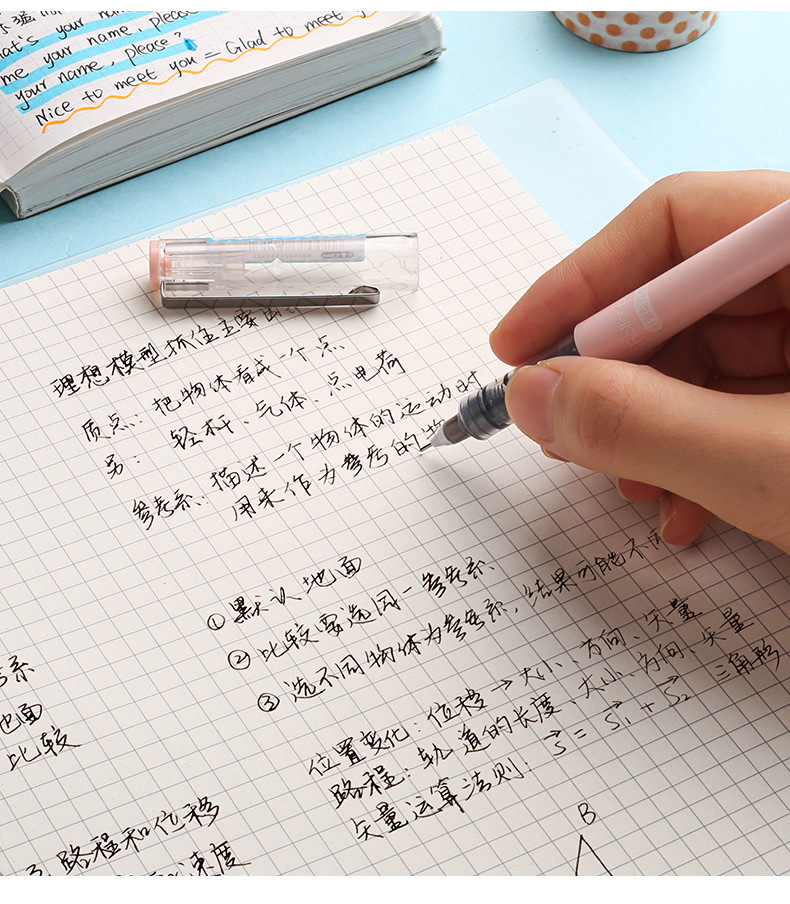 your name
me your name, please
your name, please?
Nice to meet you = Glad to meet y
理想模型 抓住主要
质点: 把物体看成一个点
另: 轻杆、气体、点电荷
参考系: 描述一个物体的运动时
用来作为参考的物
① 默认地面
② 比较要选同一参考系
③ 选不同物体为参考系, 结果可能不同
位置变化: 位移 → 大小、方向、矢量
路程: 轨道的长度、大小、方向、矢量
矢量运算法则: S⃗ = S⃗₁ + S⃗₂ 三角形
B
系
地面
比较
3. 路程和位移
速度